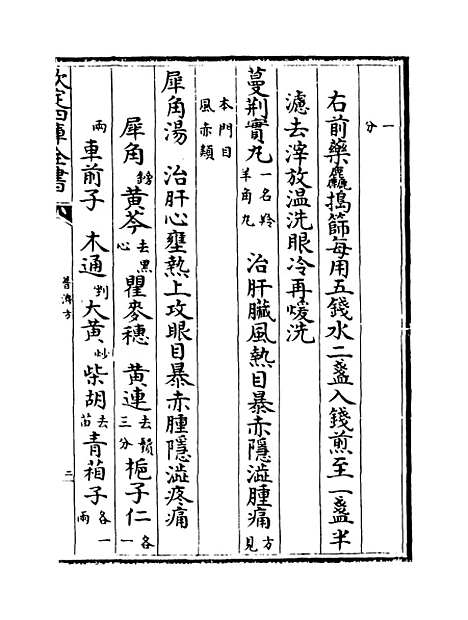 一分
右前藥麤搗篩每用五錢水二盞入錢煎至一盞半
濾去滓放温洗眼冷再煖洗
蔓荆實丸一名羚羊角丸 治肝臟風熱目暴赤隱澁腫痛方見
本門目風赤類
犀角湯 治肝心壅熱上攻眼目暴赤腫隱澁疼痛
犀角鎊 黄芩去黑心 瞿麥穗 黄連去鬚三分 梔子仁各一
兩 車前子 木通剉 大黄炒 柴胡去苗 青葙子各一兩
欽定四庫全書
普濟方
二